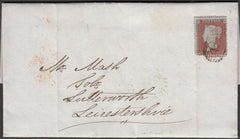 Mr. Mash
Solr
Lutterworth
Leicestershire